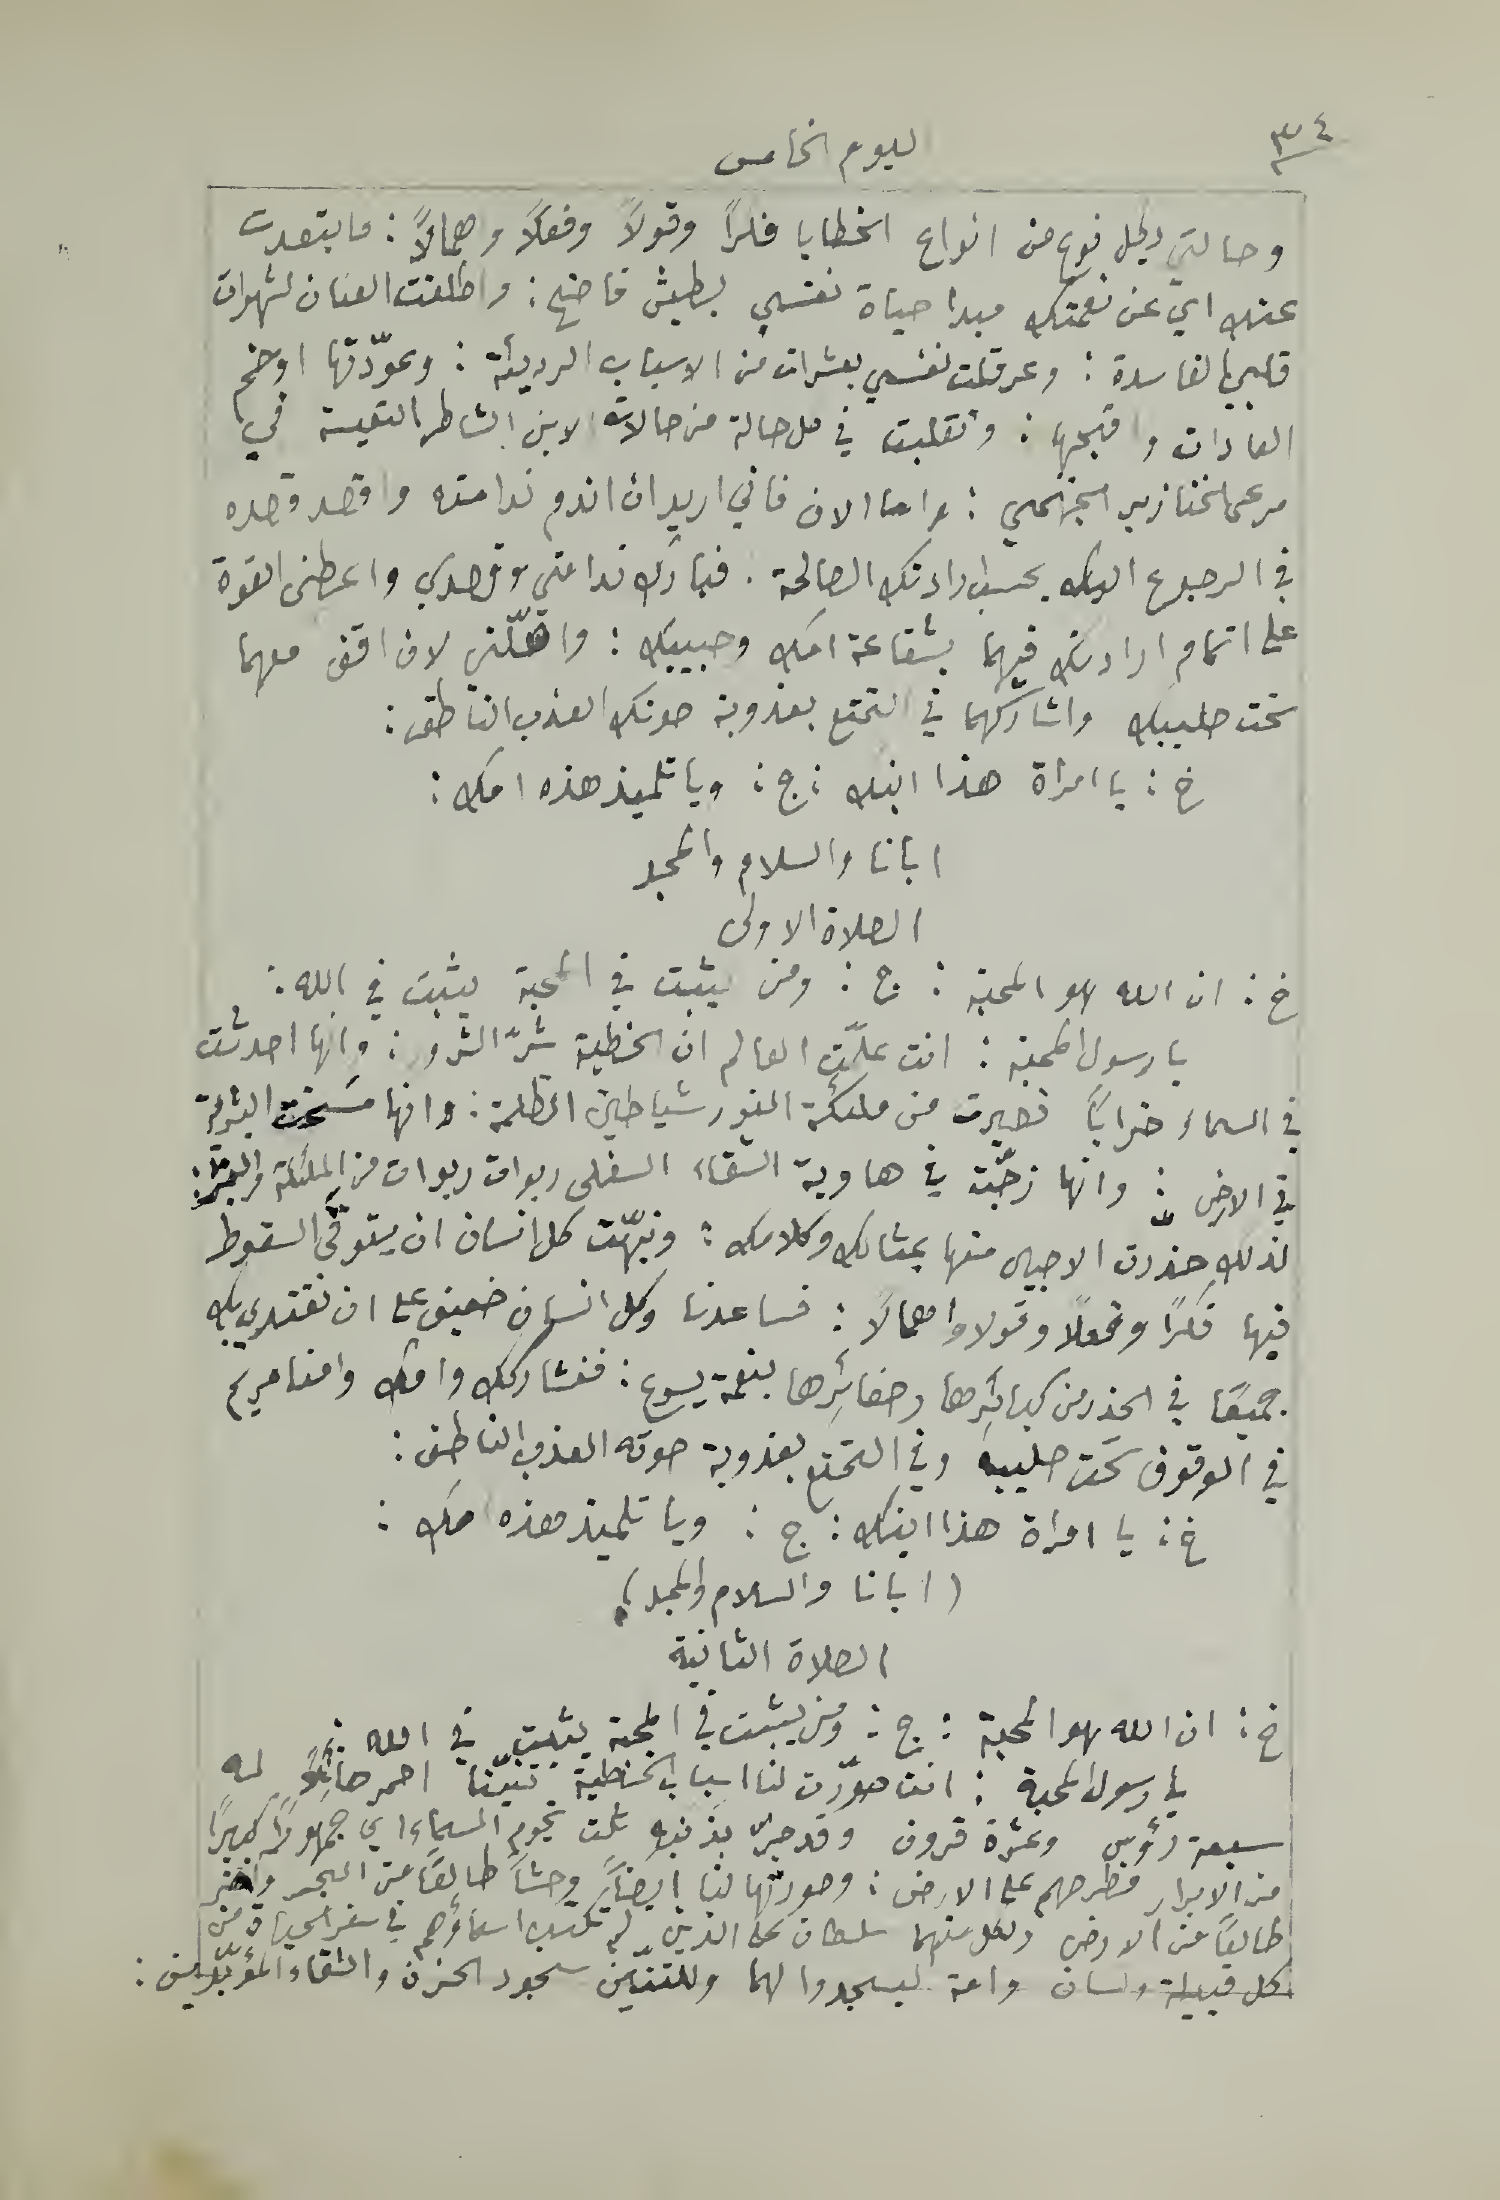 ٣٤
اليوم الخامس
وحالتي وبكل نوع من انواع الخطايا فكراً وقولاً وفعلاً واهمالاً : فابتعدت
عنك اي عن نعمتك مبدا حياة نفسي بطيش فاضح : واطلقت العنان لشهوات
قلبي الفاسدة : وعرقلت نفسي بعشرات من الاسباب الرديئة : وعوّدتها اوخم
العادات واقبحها : وتقلبت في كل حالة من حالات الابن الشاطر التعيسة في
مرعى الخنازير الجهنمي : واما الان فاني اريد ان اندم ندامته واقصد قصده
في الرجوع اليك بحسب ارادتك الصالحة . فبارك ندامتي وقصدي واعطني القوة
على اتمام ارادتك فيهما بشفاعة امك وحبيبك : واهّلني لان اقف معهما
تحت صليبك واشاركهما في التمتع بعذوبة صوتك العذب الناطق :
خ : يا امرأة هذا ابنك : ج : ويا تلميذ هذه امك :
ابانا والسلام والمجد
الصلاة الاولى
خ : ان الله هو المحبة : ج : ومن يثبت في المحبة يثبت في الله :
يا رسول المحبة : انت علّمت العالم ان الخطية شرّ الشرور : وانها احدثت
في السماء خراباً فصيرت من ملئكة النور شياطين الظلمة : وانها مسخت البشرية
في الارض : وانها زجّت في هاوية الشقاء السفلى ربوات ربوات من الملئكة والبشر :
لذلك حذرت الاجيال منها بمثالك وكلامك : ونبّهت كل انسان ان يتوقّى السقوط
فيها فكراً وفعلاً وقولا واهمالاً : فساعدنا وكل انسان ضعيف على ان نقتدي بك
جميعًا في الحذر من كبائرها وصغائرها بنعمة يسوع : فنشاركك وامك وامنا مريم
في الوقوف تحت صليبه وفي التمتع بعذوبة صوته العذب الناطق :
خ : يا امراة هذا ابنك : ج : ويا تلميذ هذه امك :
( ابانا والسلام والمجد )
الصلاة الثانية
خ : ان الله هو المحبة : ج : ومن يثبت في المحبة يثبت في الله :
يا رسول المحبة : انت صوّرت لنا اسباب الخطية تنّينًا احمر هائلاً له
سبعة رؤوس وعشرة قرون وقد جرّ بذنبه ثلث نجوم السماء اي جمهورًا كبيرًا
من الابرار فطرحهم على الارض : وصورتها لنا ايضاً وحشاً طالعًا من البحر واخر
طالعًا من الارض ولكل منهما سلطان على الذين لم تكتب اسماؤهم في سفر الحياة من
كل قبيلة ولسان وامة ليسجدوا لهما وللتنّين سجود الحزن والشقاء المؤبّدين :